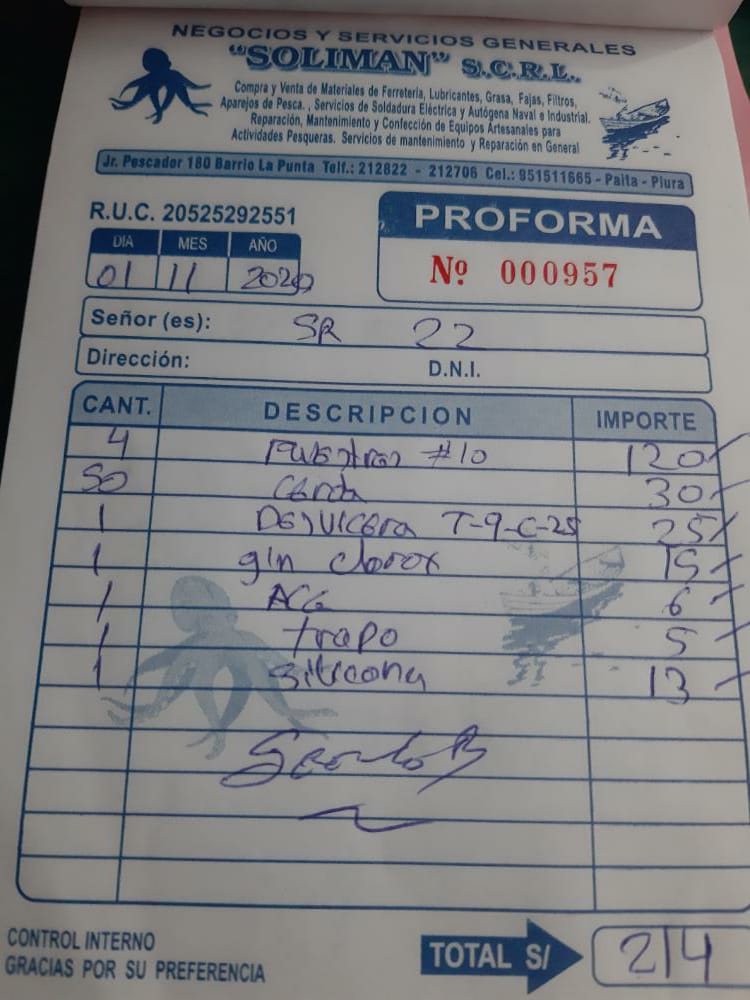 NEGOCIOS Y SERVICIOS GENERALES
"SOLIMAN" S.C.R.L.
Compra y Venta de Materiales de Ferretería, Lubricantes, Grasa, Fajas, Filtros,
Aparejos de Pesca. , Servicios de Soldadura Eléctrica y Autógena Naval e Industrial.
Reparación, Mantenimiento y Confección de Equipos Artesanales para
Actividades Pesqueras. Servicios de mantenimiento y Reparación en General
Jr. Pescador 180 Barrio La Punta Telf.: 212822 - 212706 Cel.: 951511665 - Paita - Piura
R.U.C. 20525292551
PROFORMA
DIA MES AÑO
Nº 000957
01 11 2020
Señor (es): SR 22
Dirección: D.N.I.
CANT. DESCRIPCION IMPORTE
4 #10 120
50 30
1 T-9-C-25 25
1 gln clorox 15
1 ACE 6
1 trapo 5
1 Silicona 13
CONTROL INTERNO
GRACIAS POR SU PREFERENCIA
TOTAL S/ 214